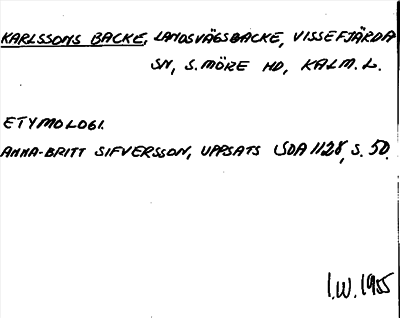 KARLSSONS BACKE, LANDSVÄGSBACKE, VISSEFJÄRDA
SN, S. MÖRE HD, KALM. L.
ETYMOLOGI.
ANNA-BRITT SIFVERSSON, UPPSATS SDA 1128, S. 50.
I.W. 1955